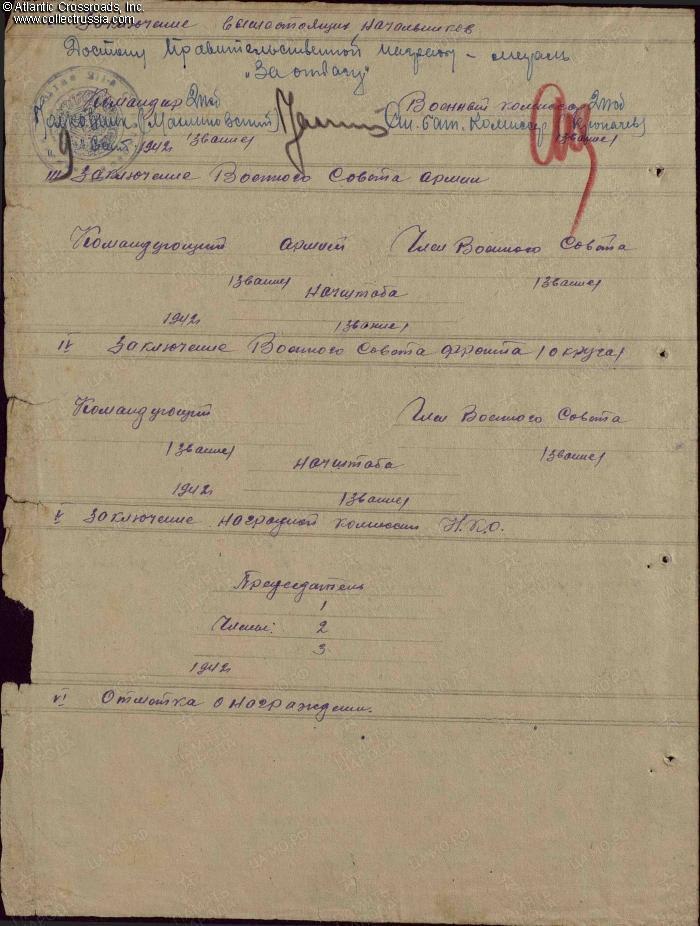 © Atlantic Crossroads, Inc.
www.collectrussia.com
Заключение вышестоящих начальников
Достоин Правительственной награды – медаль
"За отвагу"
Командир 2тб Военный комиссар 2тб
(Малиновский) (Ст. бат. Комиссар
9 сент. 1942 /звание/ /звание/
III Заключение Военного Совета армии
Командующий армией Член Военного Совета
/звание/ /звание/
Начштаба
1942 /звание/
IV Заключение Военного Совета фронта /округа/
Командующий Член Военного Совета
/звание/ /звание/
Начштаба
1942 /звание/
V Заключение наградной комиссии Н.К.О.
Председатель
1
Члены: 2
3
1942
VI Отметка о награждении.